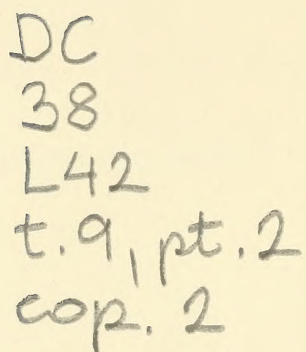 DC
38
L42
t.9, pt.2
cop. 2